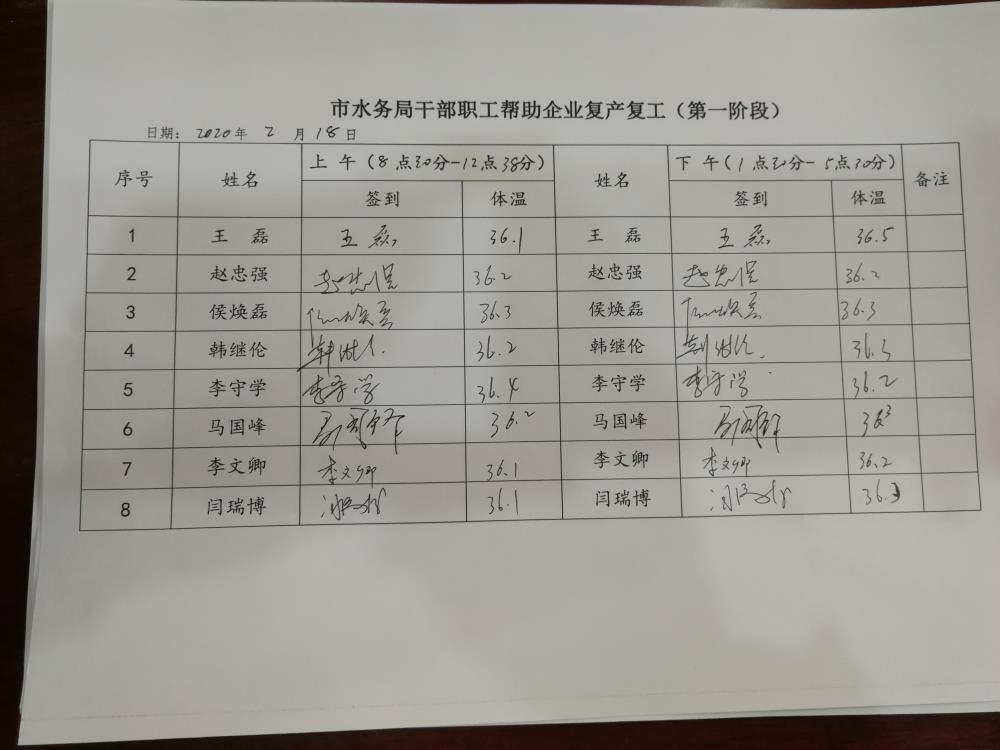 市水务局干部职工帮助企业复产复工（第一阶段）
日期: 2020 年 2 月 18 日
序号 姓名 上 午（8 点30分-12点38分） 姓名 下 午（1 点30分- 5点30分） 备注
签到 体温 签到 体温
1 王 磊 王 磊 36.1 王 磊 王 磊 36.5
2 赵忠强 赵忠强 36.2 赵忠强 赵忠强 36.2
3 侯焕磊 36.3 侯焕磊 36.3
4 韩继伦 36.2 韩继伦 36.3
5 李守学 李守学 36.4 李守学 李守学 36.2
6 马国峰 36.2 马国峰 363
7 李文卿 李文卿 36.1 李文卿 李文卿 36.2
8 闫瑞博 36.1 闫瑞博 36.3